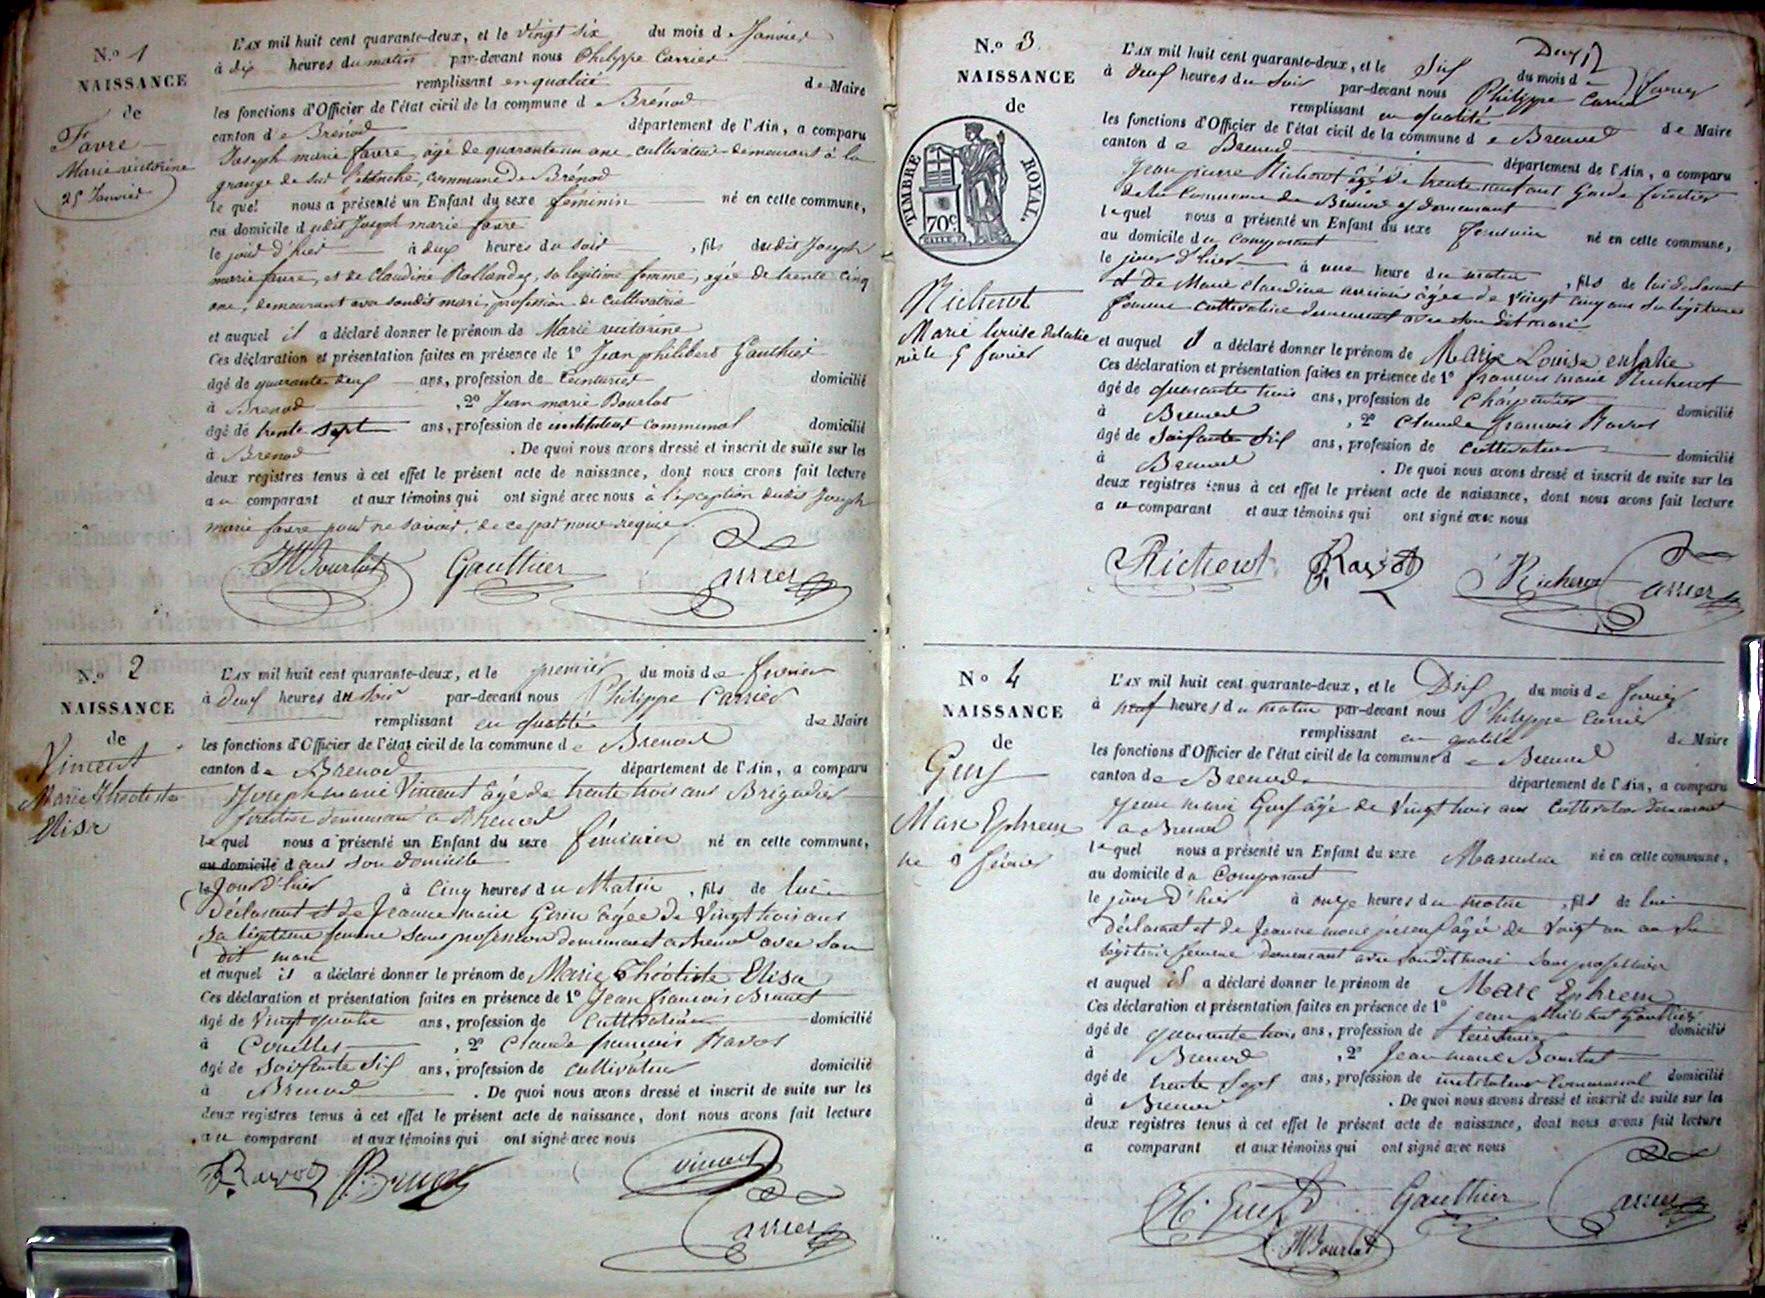 N.º 1
NAISSANCE
de
Favre
Marie victorine
25 Janvier
L'AN mil huit cent quarante-deux, et le vingt six du mois de Janvier
à dix heures du matin par-devant nous Philippe Carrier
remplissant en qualité de Maire
les fonctions d'Officier de l'état civil de la commune de Brénod
canton de Brénod département de l'Ain, a comparu
Joseph marie favre, âgé de quarante un ans, cultivateur demeurant à la
grange de sur l'étanche, commune de Brénod
le quel nous a présenté un Enfant du sexe féminin né en cette commune,
au domicile dudit Joseph marie favre
le jour d'hier à deux heures du soir, fils dudit Joseph
marie favre, et de Claudine Rollandez, sa légitime femme, agée de trente cinq
ans, demeurant avec sondit mari, profession de cultivatrice
et auquel il a déclaré donner le prénom de Marie victorine
Ces déclaration et présentation faites en présence de 1º Jean philibert Gauthier
âgé de quarante deux ans, profession de teinturier domicilié
à Brenod, 2º Jean marie Bourlot
âgé de trente sept ans, profession de instituteur communal domicilié
à Brenod. De quoi nous avons dressé et inscrit de suite sur les
deux registres tenus à cet effet le présent acte de naissance, dont nous avons fait lecture
au comparant et aux témoins qui ont signé avec nous à l'exception dudit Joseph
marie favre pour ne savoir, de ce par nous requis.
JM Bourlot Gauthier Carrier
N.º 2
NAISSANCE
de
Vincent
Marie Théotiste
Elisa
L'AN mil huit cent quarante-deux, et le premier du mois de fevrier
à deux heures du soir par-devant nous Philippe Carrier
remplissant en qualité de Maire
les fonctions d'Officier de l'état civil de la commune de Brenod
canton de Brenod département de l'Ain, a comparu
Joseph marie Vincent âgé de trente trois ans Brigadier
forestier demeurant à Brenod
lequel nous a présenté un Enfant du sexe féminin né en cette commune,
au domicile dans son domicile
le Jour d'hier à cinq heures du Matin, fils de lui
Déclarant et de Jeanne marie Gerin âgée de Vingt trois ans
sa légitime femme sans profession demeurant a Brenod avec son
dit mari
et auquel il a déclaré donner le prénom de Marie Théotiste Elisa
Ces déclaration et présentation faites en présence de 1º Jean francois Brunet
âgé de Vingt quatre ans, profession de Cultivateur domicilié
à, 2º Claude francois Ravot
âgé de Soixante Six ans, profession de cultivateur domicilié
à Brenod. De quoi nous avons dressé et inscrit de suite sur les
deux registres tenus à cet effet le présent acte de naissance, dont nous avons fait lecture
au comparant et aux témoins qui ont signé avec nous
Ravot Brunet Vincent
Carrier
N.º 3
NAISSANCE
de
TIMBRE ROYAL.
70c
Richerot
Marie louise
née le 9 fevrier
L'AN mil huit cent quarante-deux, et le Dix du mois de fevrier
à deux heures du Soir par-devant nous Philippe Carrier
remplissant en qualité de Maire
les fonctions d'Officier de l'état civil de la commune de Brenod
canton de Brenod département de l'Ain, a comparu
Jean pierre Richerot âgé de trente neuf ans Garde forestier
de la Commune de Brenod y demeurant
lequel nous a présenté un Enfant du sexe féminin né en cette commune,
au domicile du Comparant
le jour d'hier à une heure du matin, fils de lui déclarant
et De Marie Claudine âgée de vingt cinq ans sa légitime
femme cultivatrice demeurant avec son dit mari
et auquel il a déclaré donner le prénom de Marie Louise
Ces déclaration et présentation faites en présence de 1º francois marie Richerot
âgé de quarante trois ans, profession de Charpentier domicilié
à Brenod, 2º Claude francois Ravot
âgé de Soixante Six ans, profession de Cultivateur domicilié
à Brenod. De quoi nous avons dressé et inscrit de suite sur les
deux registres tenus à cet effet le présent acte de naissance, dont nous avons fait lecture
au comparant et aux témoins qui ont signé avec nous
Richerot Ravot Richerot Carrier
Nº 4
NAISSANCE
de
Marc Ephrem
né 9 février
L'AN mil huit cent quarante-deux, et le Dix du mois de fevrier
à neuf heures du matin par-devant nous Philippe Carrier
remplissant en qualité de Maire
les fonctions d'Officier de l'état civil de la commune de Brenod
canton de Brenod département de l'Ain, a comparu
Jean marie âgé de Vingt trois ans Cultivateur Demeurant
a Brenod
lequel nous a présenté un Enfant du sexe Masculin né en cette commune,
au domicile du Comparant
le jour d'hier à onze heures du matin, fils de lui
Déclarant et de Jeanne marie âgée de Vingt un an Sa
légitime femme demeurant avec sondit mari Sans profession
et auquel il a déclaré donner le prénom de Marc Ephrem
Ces déclaration et présentation faites en présence de 1º jean philibert Gauthier
âgé de quarante trois ans, profession de teinturier domicilié
à Brenod, 2º Jean marie Bourlot
âgé de trente Sept ans, profession de instituteur Communal domicilié
à Brenod. De quoi nous avons dressé et inscrit de suite sur les
deux registres tenus à cet effet le présent acte de naissance, dont nous avons fait lecture
a comparant et aux témoins qui ont signé avec nous
Gauthier Carrier
JM Bourlot